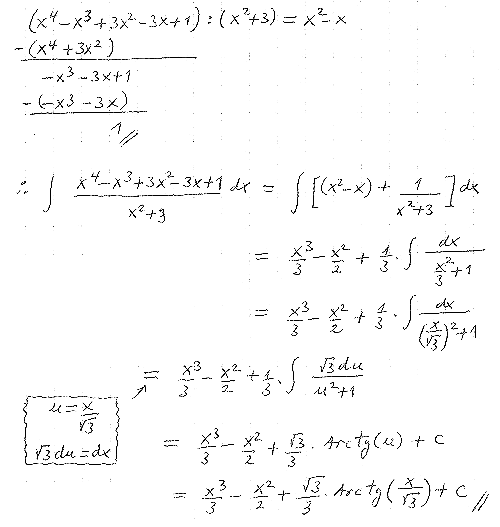 (x⁴ - x³ + 3x² - 3x + 1) : (x² + 3) = x² - x
- (x⁴ + 3x²)
- x³ - 3x + 1
- (-x³ - 3x)
1 //
∴ ∫ (x⁴ - x³ + 3x² - 3x + 1)/(x² + 3) dx = ∫ [(x² - x) + 1/(x² + 3)] dx
= x³/3 - x²/2 + 1/3 · ∫ dx/(x²/3 + 1)
= x³/3 - x²/2 + 1/3 · ∫ dx/((x/√3)² + 1)
= x³/3 - x²/2 + 1/3 · ∫ √3 du/(u² + 1)
u = x/√3
√3 du = dx
= x³/3 - x²/2 + √3/3 · Arctg(u) + C
= x³/3 - x²/2 + √3/3 · Arctg(x/√3) + C //